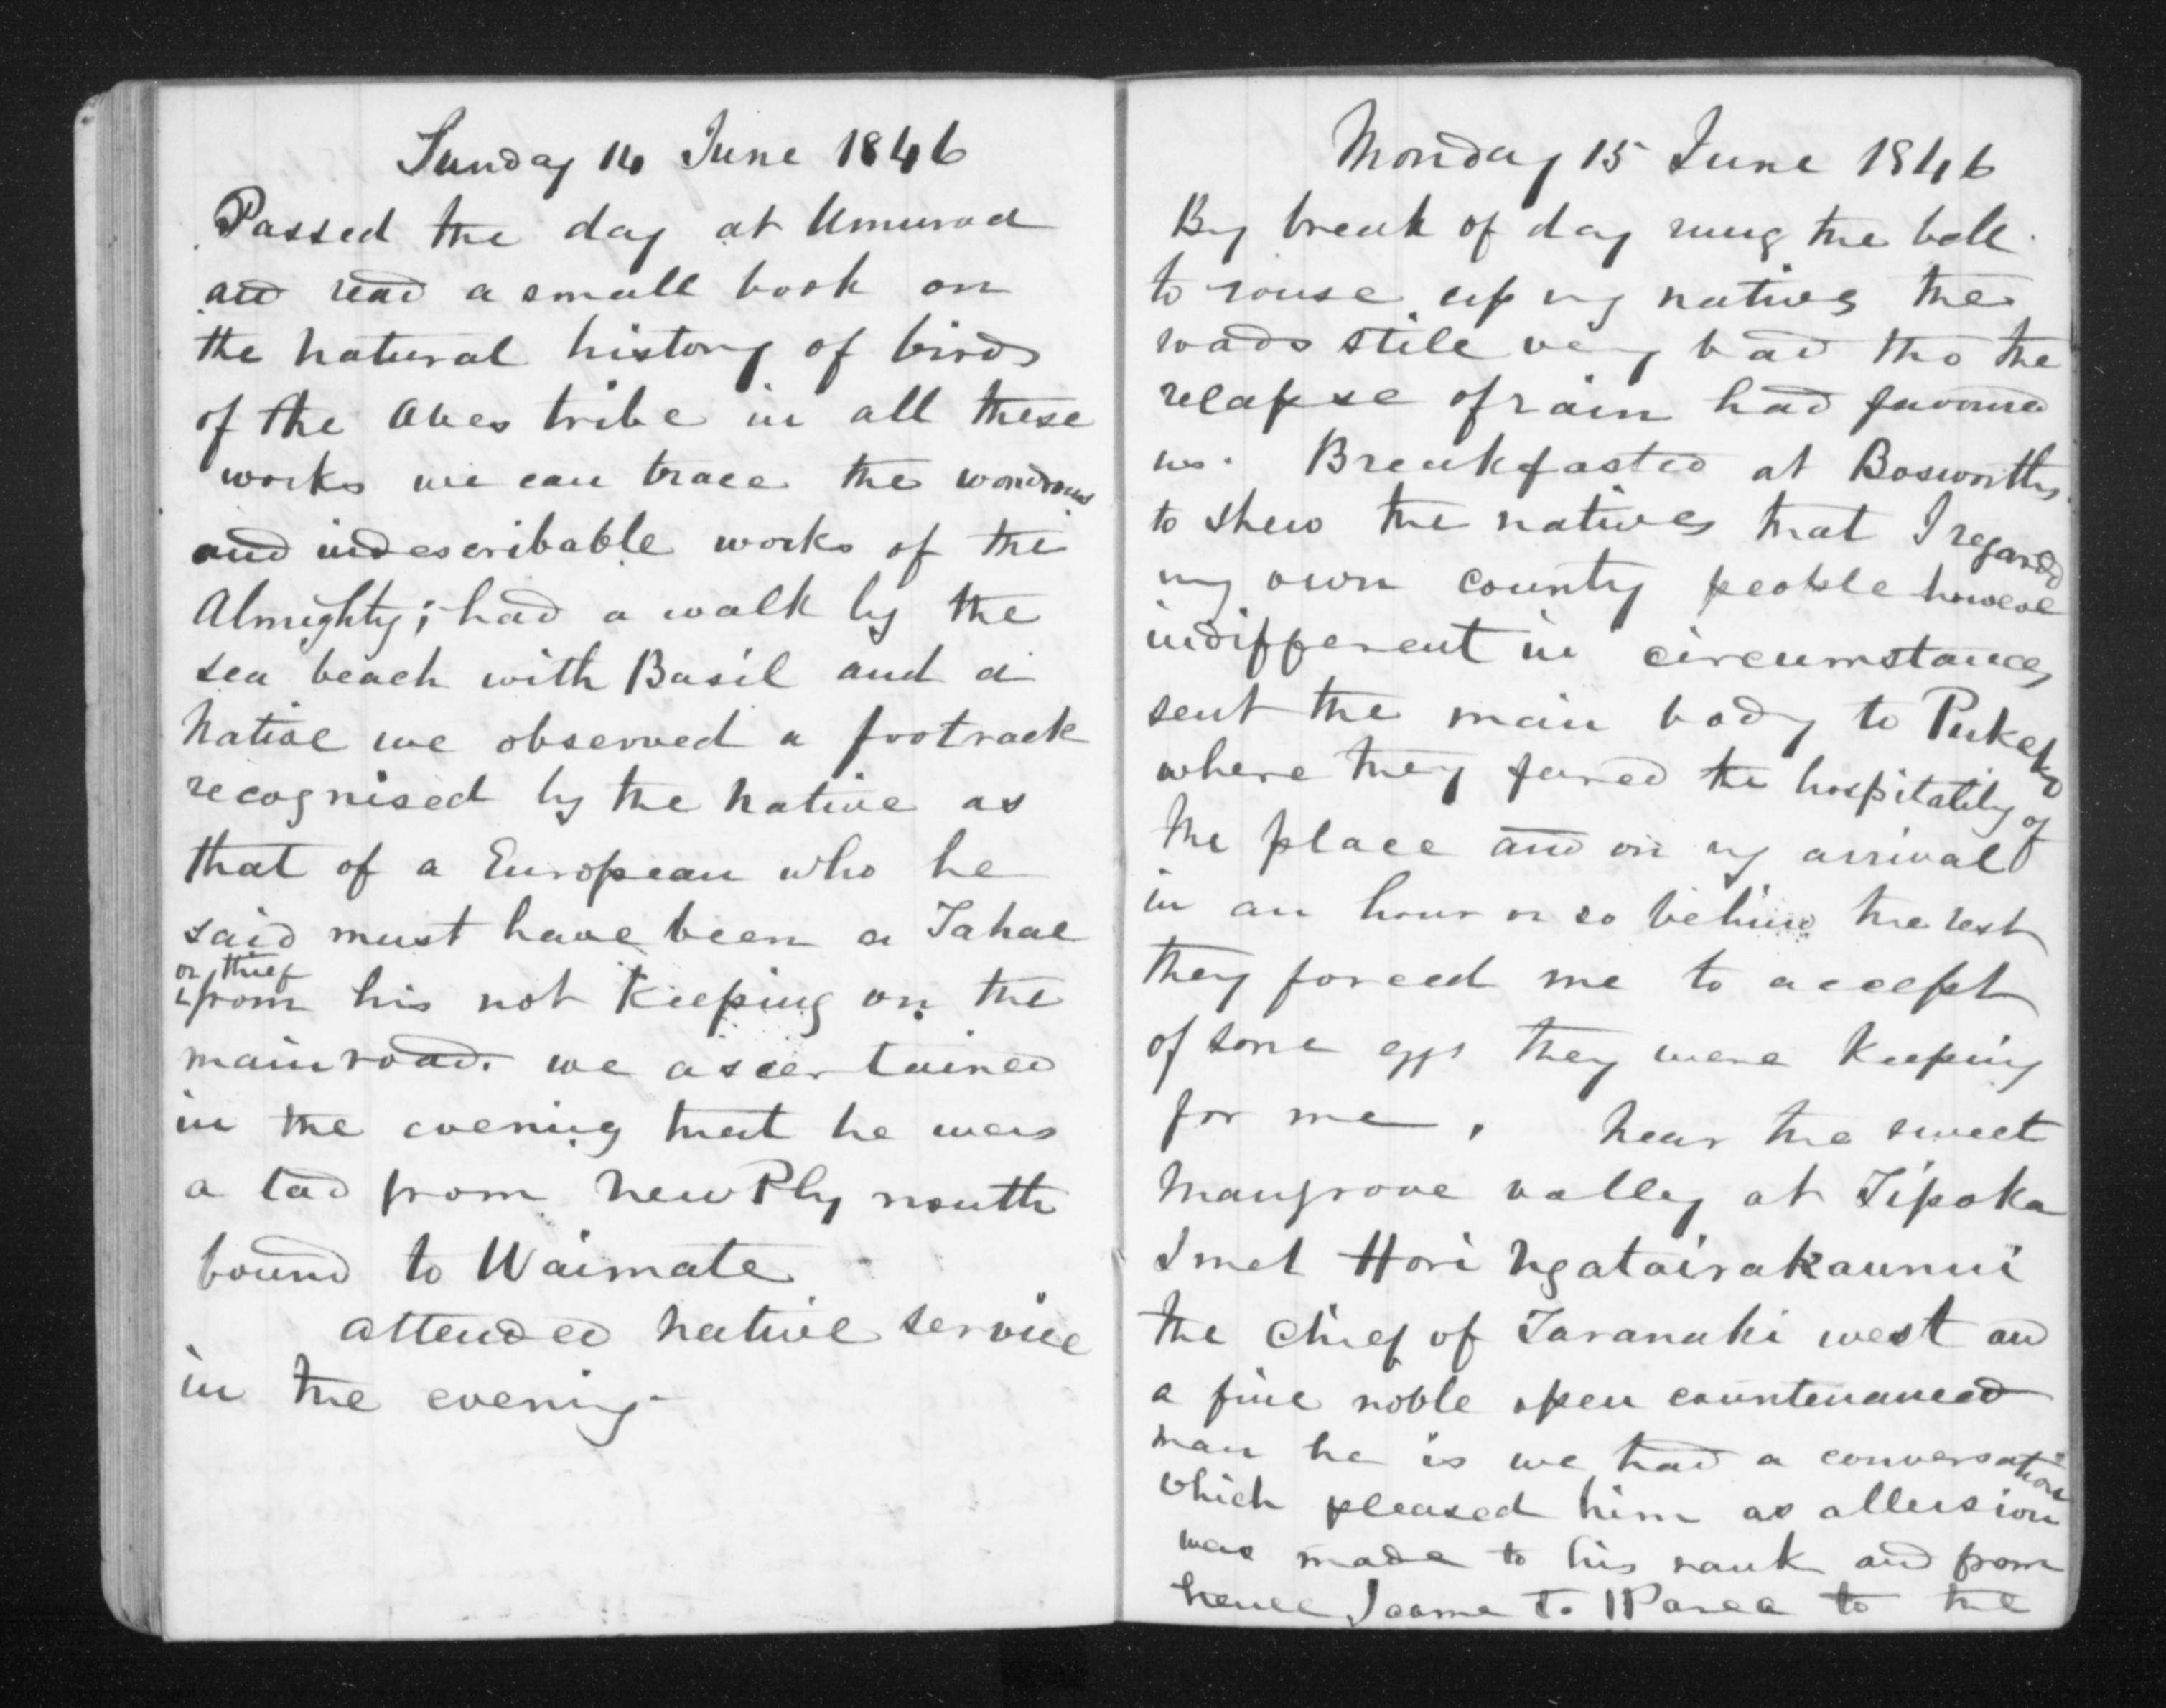 Sunday 14 June 1846
Passed the day at Umuroa
and read a small book on
the natural history of birds
of the Aves tribe in all these
works we can trace the wondrous
and indescribable works of the
Almighty; had a walk by the
sea beach with Basil and a
Native we observed a footrack
recognised by the native as
that of a European who he
said must have been a Tahae
or thief
from his not keeping on the
main road. we ascertained
in the evening that he was
a lad from New Plymouth
bound to Waimate
attended native service
in the evening
Monday 15 June 1846
By break of day rung the bell
to rouse up my natives the
roads still very bad tho the
relapse of rain had favoured
us. Breakfasted at Bosworths
to shew the natives that I regarded
my own country people however
indifferent in circumstances
sent the main body to
where they fared the hospitality of
the place and on my arrival
in an hour or so behind the rest
they forced me to accept
of some eggs they were keeping
for me, near the sweet
Mangrove valley at Tipoka
I met Hori Ngatairakaunui
the chief of Taranaki west and
a fine noble open countenanced
man he is we had a conversation
which pleased him as allusion
was made to his rank and from
hence I came to to the